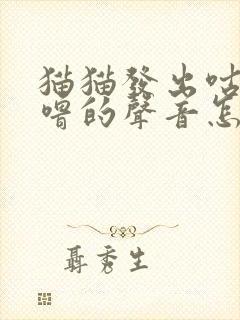 猫猫發出咕
嚕的聲音怎
聶秀生